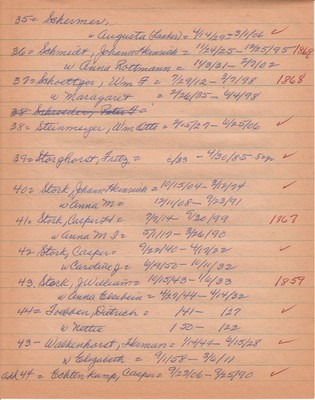 35= Schermer,
w Augusta (Lanker) = 4/14/29 = 3/1/06 ✓
36= Schmidt, Johann Heinrich = 11/29/25 - 10/25/95 1868
w Anna Rottmann = 1/3/31 - 2/7/02
37= Schoettger, Wm F = 7/29/12 - 2/7/98 1868
w Maragaret = 2/26/35 - 4/4/98
38= Schroeder, Peter F =
38= Steinmeyer, Wm Otto = 2/15/27 - 6/25/06 ✓
39= Storghorst, Fritz = c/83 - 4/30/85 - 2 ✓
40= Stork, Johann Heinrich = 10/15/04 - 3/12/74 ✓
w Anna M = 12/11/08 - 7/23/91
41= Stork, Casper H = 7/9/14 - 7/30/99 1867
w Anna M I = 5/1/19 - 3/26/90
42 Stork, Casper = 9/22/40 - 4/13/22 ✓
w Caroline J = 6/9/50 - 10/11/32
43, Stork, J William = 10/15/43 - 1/6/33 1859
w Anna = 4/27/44 - 4/14/32
44= Tobben, Dietrich = 141 - 127 ✓
w Nettie 1 50 - 122
43 - Walkenhorst, Herman = 1/14/44 - 4/15/28 ✓
w Elizabeth = 9/11/58 - 3/6/11
add 44 = Echtenkamp, Casper = 9/23/06 - 3/25/90 ✓